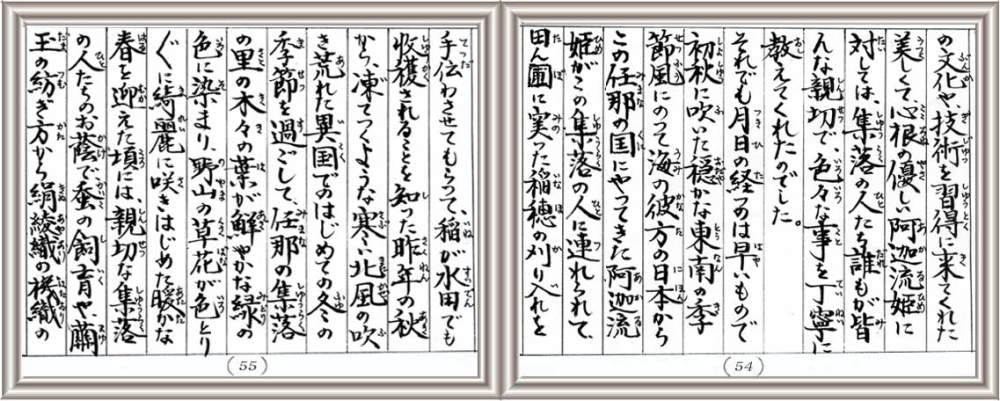 の文化や、技術を習得に来てくれた
美しくて心根の優しい阿迦流姫に
対しては、集落の人たち誰もが皆
んな親切で、色々な事を丁寧に
教えてくれたのでした。
それでも月日の経つのは早いもので
初秋に吹いた穏かな東南の季
節風にのって海の彼方の日本から
この任那の国にやってきた阿迦流
姫がこの集落の人に連れられて、
田ん圃に実った稲穂の刈り入れを
(54)
手伝わさせてもらって、稲が水田でも
収穫されることを知った昨年の秋
から、凍てつくような寒い北風の吹
き荒れた異国でのはじめての冬の
季節を過ごして、任那の集落
の里の木々の葉が鮮やかな緑の
色に染まり、野山の草花が色とり
〲に綺麗に咲きはじめた暖かな
春を迎えた頃には、親切な集落
の人たちのお蔭で蚕の飼育や、繭
玉の紡ぎ方から絹綾織の機織の
(55)